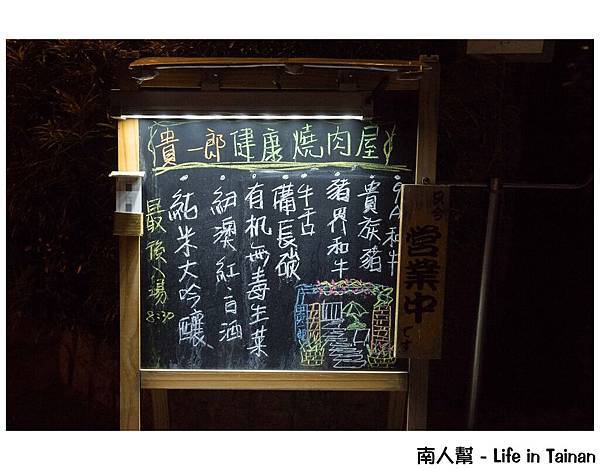 貴一郎健康燒肉屋
9A和牛
貴族豬
豬界和牛
牛舌
備長碳
有机無毒生菜
紐澳紅白酒
純米大吟釀
最後入場
8:30
營業中
南人幫 - Life in Tainan